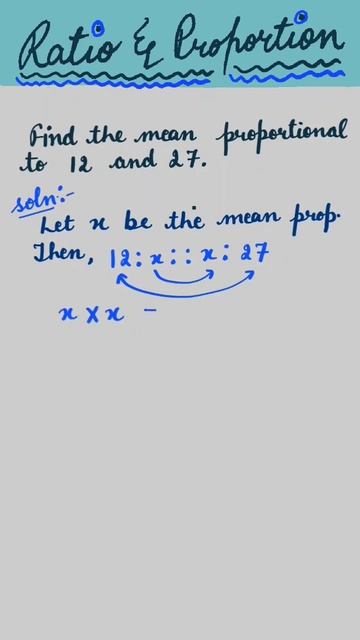 Ratio & Proportion
Find the mean proportional
to 12 and 27.
soln:-
Let x be the mean prop.
Then, 12 : x :: x : 27
x × x =